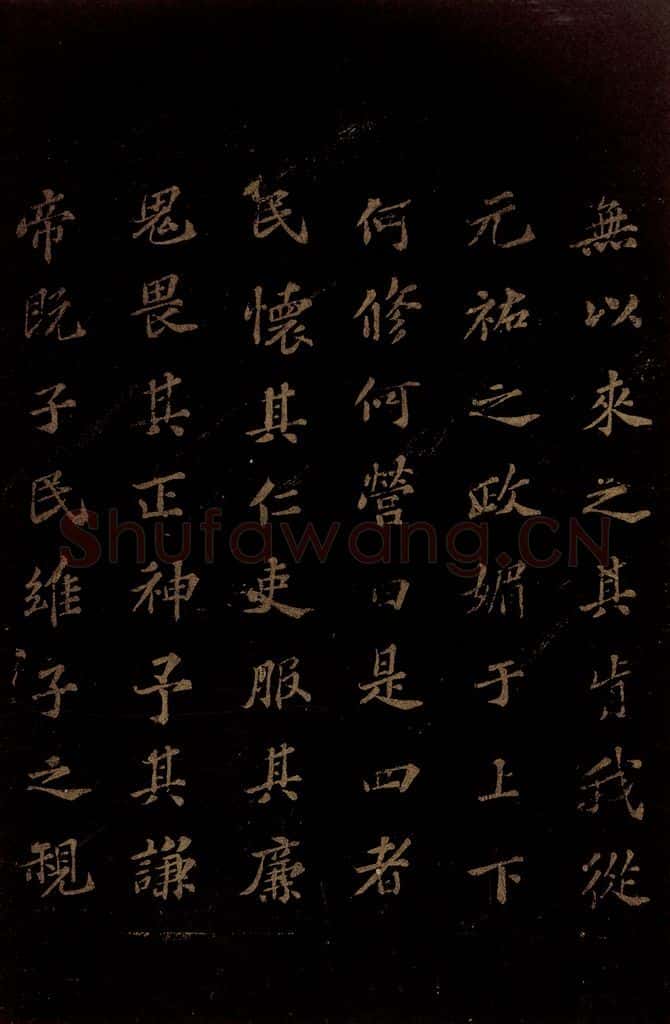 無以來之其肯我從
元祐之政媚于上下
何修何營曰是四者
民懷其仁吏服其廉
鬼畏其正神予其謙
帝既子民維子之視
Shufawang.CN